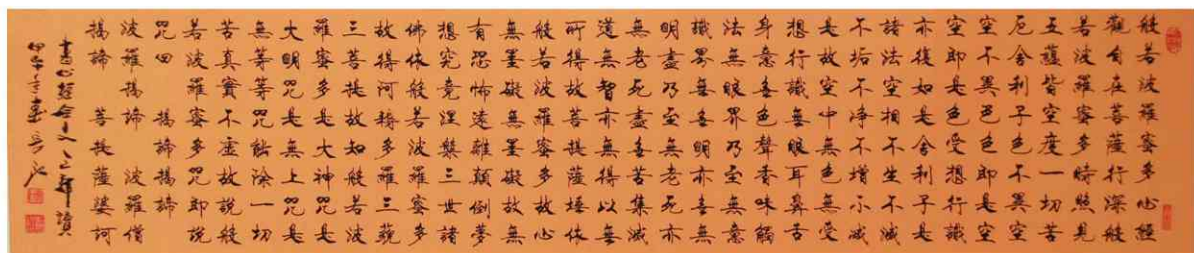 般若波羅蜜多心經
觀自在菩薩行深般
若波羅蜜多時照見
五蘊皆空度一切苦
厄舍利子色不異空
空不異色色即是空
空即是色受想行識
亦復如是舍利子是
諸法空相不生不滅
不垢不淨不增不減
是故空中無色無受
想行識無眼耳鼻舌
身意無色聲香味觸
法無眼界乃至無意
識界無無明亦無無
明盡乃至無老死亦
無老死盡無苦集滅
道無智亦無得以無
所得故菩提薩埵依
般若波羅蜜多故心
無罣礙無罣礙故無
有恐怖遠離顛倒夢
想究竟涅槃三世諸
佛依般若波羅蜜多
故得阿耨多羅三藐
三菩提故知般若波
羅蜜多是大神咒是
大明咒是無上咒是
無等等咒能除一切
苦真實不虛故說般
若波羅蜜多咒即說
咒曰 揭諦揭諦
波羅揭諦 波羅僧
揭諦 菩提薩婆訶
書心經全文